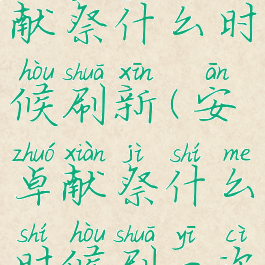 献祭什么时
hòu shuā xīn ān
候刷新(安
zhuó xiàn jì shí me
卓献祭什么
shí hòu shuā yī cì
时候刷一次